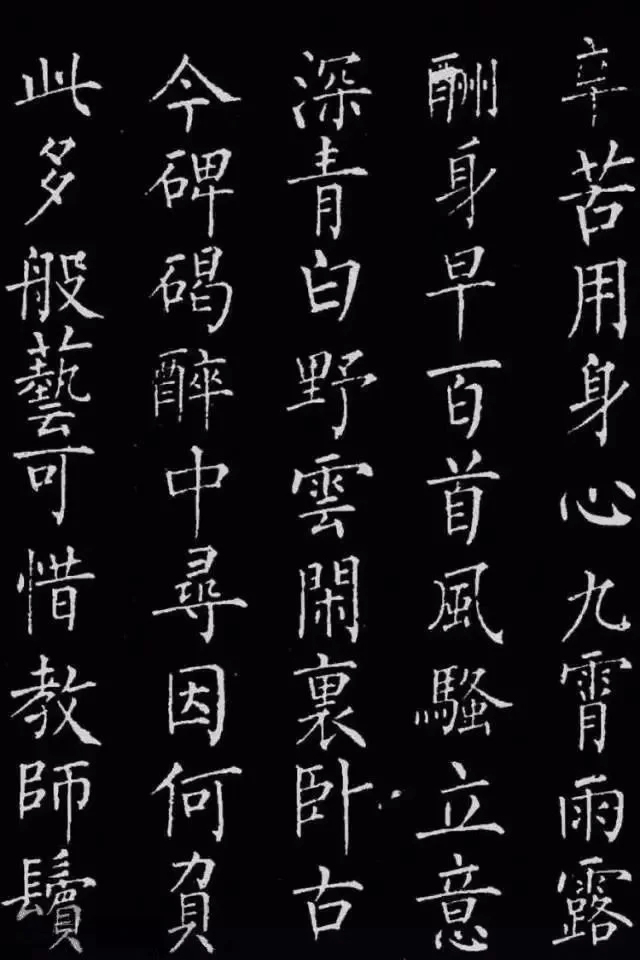 辛苦用身心九霄雨露
酬身早百首風騷立意
深青白野雲閑裏卧古
今碑碣醉中尋因何負
此多般藝可惜教師鬢